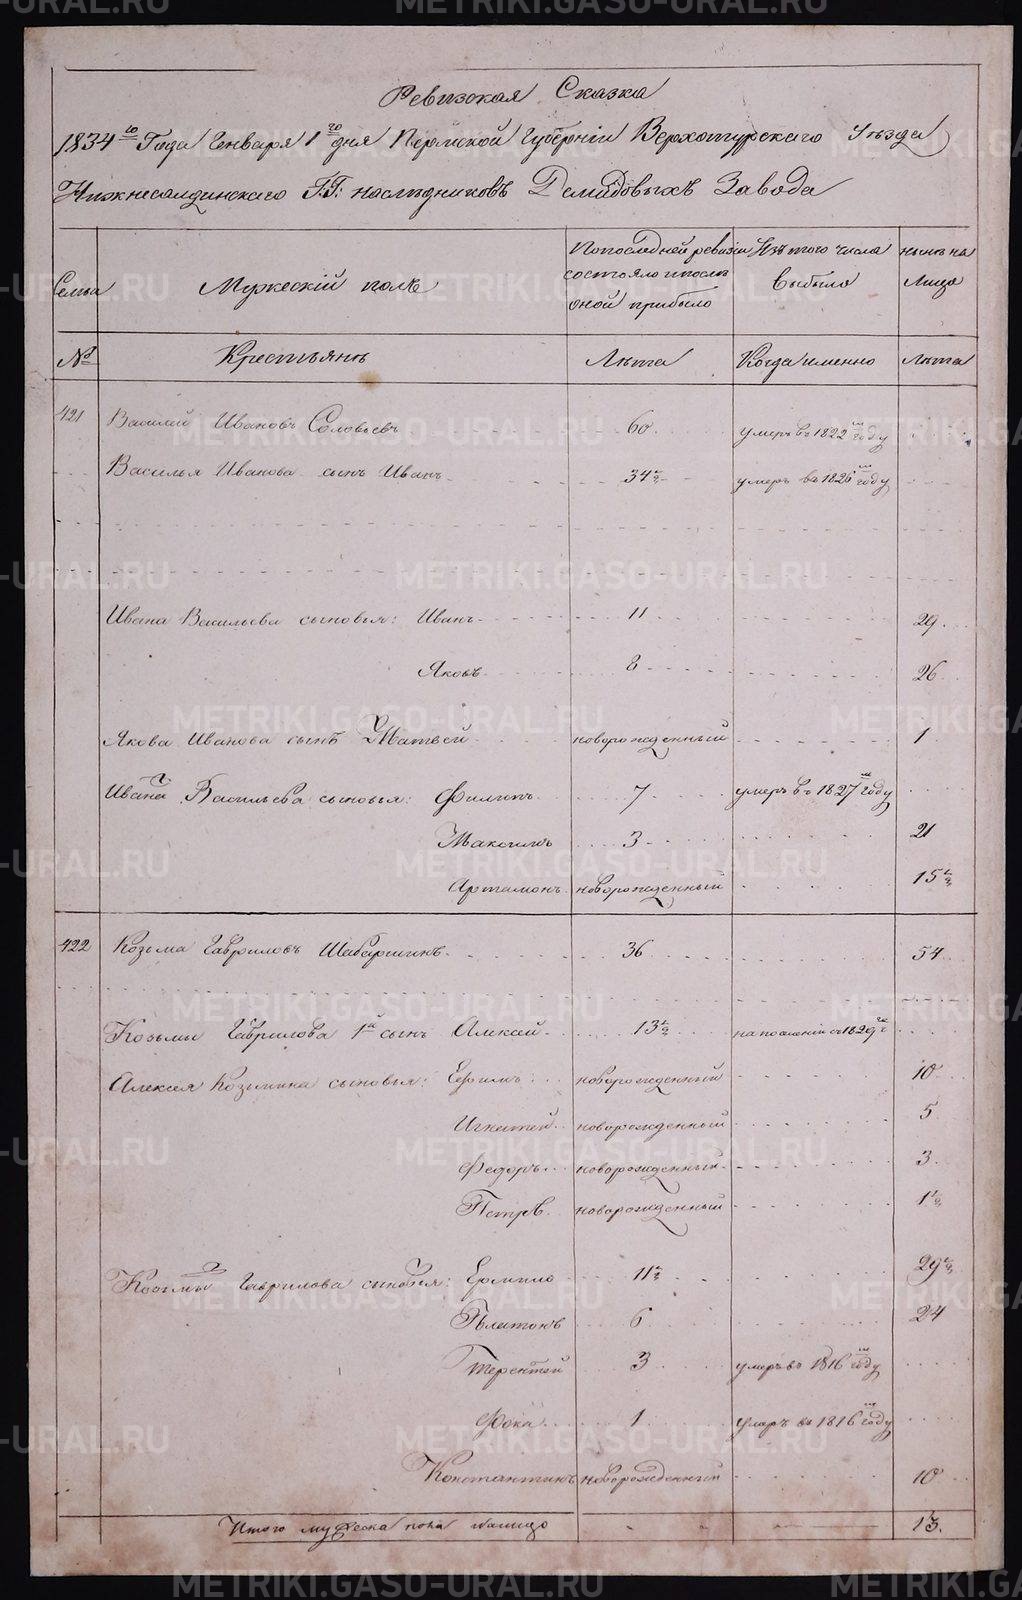 Ревизская Сказка
1834го Года Генваря 1го дня Пермской Губернiи Верхотурскаго Уѣзда
Нижнесалдинскаго Г.Г: наслѣдниковъ Демидовыхъ Завода
Семья Мужескiй полъ По последней ревизiи состояло и послѣ оной прибыло Изъ того числа Выбыло нынѣ на Лицо
№ Крестьянъ Лѣта Когда именно Лѣта
421 Василий Ивановъ Соловьевъ 60 умеръ въ 1822м году
Василья Иванова сынъ Иванъ 34½ умеръ въ 1826м году
Ивана Васильева сыновья: Иванъ 11 29
Яковъ 8 26
Якова Иванова сынъ Матвей новорожденный 1
Ивана Васильева сыновья: Филипъ 7 умеръ въ 1827м году
Максимъ 3 21
Артамонъ новорожденный 15½
422 Козьма Гавриловъ Шабаршинъ 36 54
Козьмы Гаврилова 1й сынъ Алексей 13½ на поселенiи съ 1829го
Алексея Козьмина сыновья: Ефимъ новорожденный 10
Игнатей новорожденный 5
Федоръ новорожденный 3
Петръ новорожденный 1½
Козьмы Гаврилова сыновья: Ермило 11½ 29½
Платонъ 6 24
Терентей 3 умеръ въ 1816м году
Фока 1 умеръ въ 1816м году
Константинъ новорожденный 10
Итого мужеска пола налицо 13.
METRIKI.GASO-URAL.RU